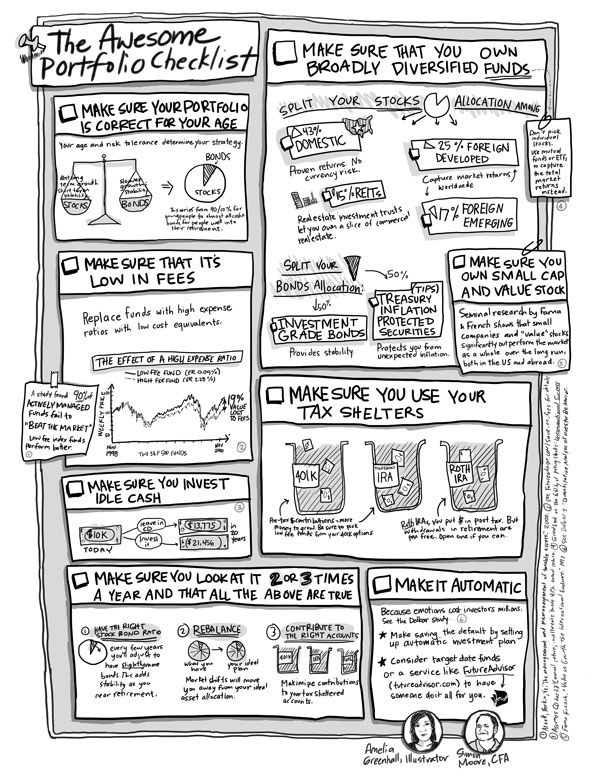 The Awesome
Portfolio Checklist
MAKE SURE YOUR PORTFOLIO
IS CORRECT FOR YOUR AGE
Your age and risk tolerance determine your strategy.
STOCKS
BONDS
BONDS
STOCKS
This varies from 90/10% for
young people to almost all cash
bonds for people well into
their retirement.
MAKE SURE THAT IT'S
LOW IN FEES
Replace funds with high expense
ratios with low cost equivalents.
THE EFFECT OF A HIGH EXPENSE RATIO
LOW FEE FUND
HIGH FEE FUND
WEEKLY PRICE
19%
VALUE
LOST
TO FEES
NOV
1998
TWO S&P 500 FUNDS
NOV
2010
A study found 90% of
ACTIVELY MANAGED
funds fail to
"BEAT THE MARKET"
Low fee index funds
perform better.
MAKE SURE YOU INVEST
IDLE CASH
$10K
TODAY
leave in
CD
$13,775
invest
it
$21,456
in 20
years
MAKE SURE THAT YOU OWN
BROADLY DIVERSIFIED FUNDS
SPLIT YOUR STOCKS ALLOCATION AMONG
43%
DOMESTIC
Proven returns. No
currency risk.
25% FOREIGN
DEVELOPED
Capture market returns
worldwide
15% REITs
Real estate investment trusts
let you own a slice of commercial
real estate.
17% FOREIGN
EMERGING
Don't pick
individual
stocks.
Use mutual
funds or ETFs
to capture
the total
market
returns
instead.
SPLIT YOUR
BONDS Allocation:
50%
INVESTMENT
GRADE BONDS
Provides stability.
50%
(TIPS)
TREASURY
INFLATION
PROTECTED
SECURITIES
Protects you from
unexpected inflation.
MAKE SURE YOU
OWN SMALL CAP
AND VALUE STOCK
Seminal research by Fama
& French shows that small
companies and "value" stocks
significantly outperform the market
as a whole over the long run,
both in the US and abroad.
MAKE SURE YOU USE YOUR
TAX SHELTERS
401K
Traditional
IRA
ROTH
IRA
Pre-tax $ contributions = more
money to grow. Be sure to pick
low fee funds from your 401k options
Roth IRAs, you put $ in post tax. But
withdrawals in retirement are
tax free. Open one if you can.
MAKE SURE YOU LOOK AT IT 2 OR 3 TIMES
A YEAR AND THAT ALL THE ABOVE ARE TRUE
1 HAVE THE RIGHT
STOCK BOND RATIO
every few years
you'll adjust to
have slightly more
bonds. This adds
stability as you
near retirement.
2 REBALANCE
what you
have
your ideal
plan
Market drifts will move
you away from your ideal
asset allocation.
3 CONTRIBUTE TO
THE RIGHT ACCOUNTS
Maximize contributions
to your tax sheltered
accounts.
MAKE IT AUTOMATIC
Because emotions cost investors millions.
See the Dalbar study
★ Make saving the default by setting
up automatic investment plan
★ Consider target date funds
or a service like FutureAdvisor
(futureadvisor.com) to have
someone do it all for you.
Amelia
Greenhall, Illustrator
Simon
Moore, CFA